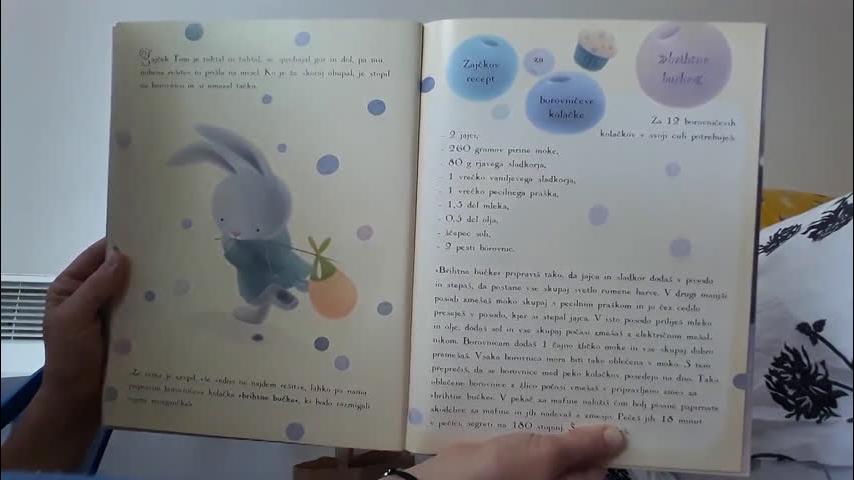 Zajček Tom je tuhtal in tuhtal, se sprehajal gor in dol, pa mu
nobena rešitev ni prišla na misel. Ko je že skoraj obupal, je stopil
na borovnico in si umazal tačko.
»Že vem« je vzkipel »še vedno ne najdem rešitve, lahko pa nama
pripravim borovničeve kolačke »brihtne bučke«, ki bodo razmigali
najine možgančke«.
Zajčkov
recept
za
borovničeve
kolačke
»brihtne
bučke«
Za 12 borovničevih
kolačkov v svoji čuli potrebuješ
- 2 jajci,
- 260 gramov pirine moke,
- 80 g rjavega sladkorja,
- 1 vrečko vaniljevega sladkorja,
- 1 vrečko pecilnega praška,
- 1,5 del mleka,
- 0,5 del olja,
- ščepec soli,
- 2 pesti borovnic.
»Brihtne bučke« pripraviš tako, da jajca in sladkor dodaš v posodo
in stepaš, da postane vse skupaj svetlo rumene barve. V drugi manjši
posodi zmešaš moko skupaj s pecilnim praškom in jo čez cedilo
preseješ v posodo, kjer si stepal jajca. V isto posodo priliješ mleko
in olje, dodaš sol in vse skupaj počasi zmešaš z električnim mešal-
nikom. Borovnicam dodaš 1 čajno žličko moke in vse skupaj dobro
premešaš. Vsaka borovnica mora biti tako oblečena v moko. S tem
preprečaš, da se borovnice med peko kolačkov, posedejo na dno. Tako
oblečene borovnice z žlico počasi vmešaš v pripravljeno zmes za
»brihtne bučke«. V pekač za mafine naložiš čim bolj pisane papirnate
skodelice za mafine in jih nadevaš z zmesjo. Pečeš jih 18 minut
v pečici, segreti na 180 stopinj.